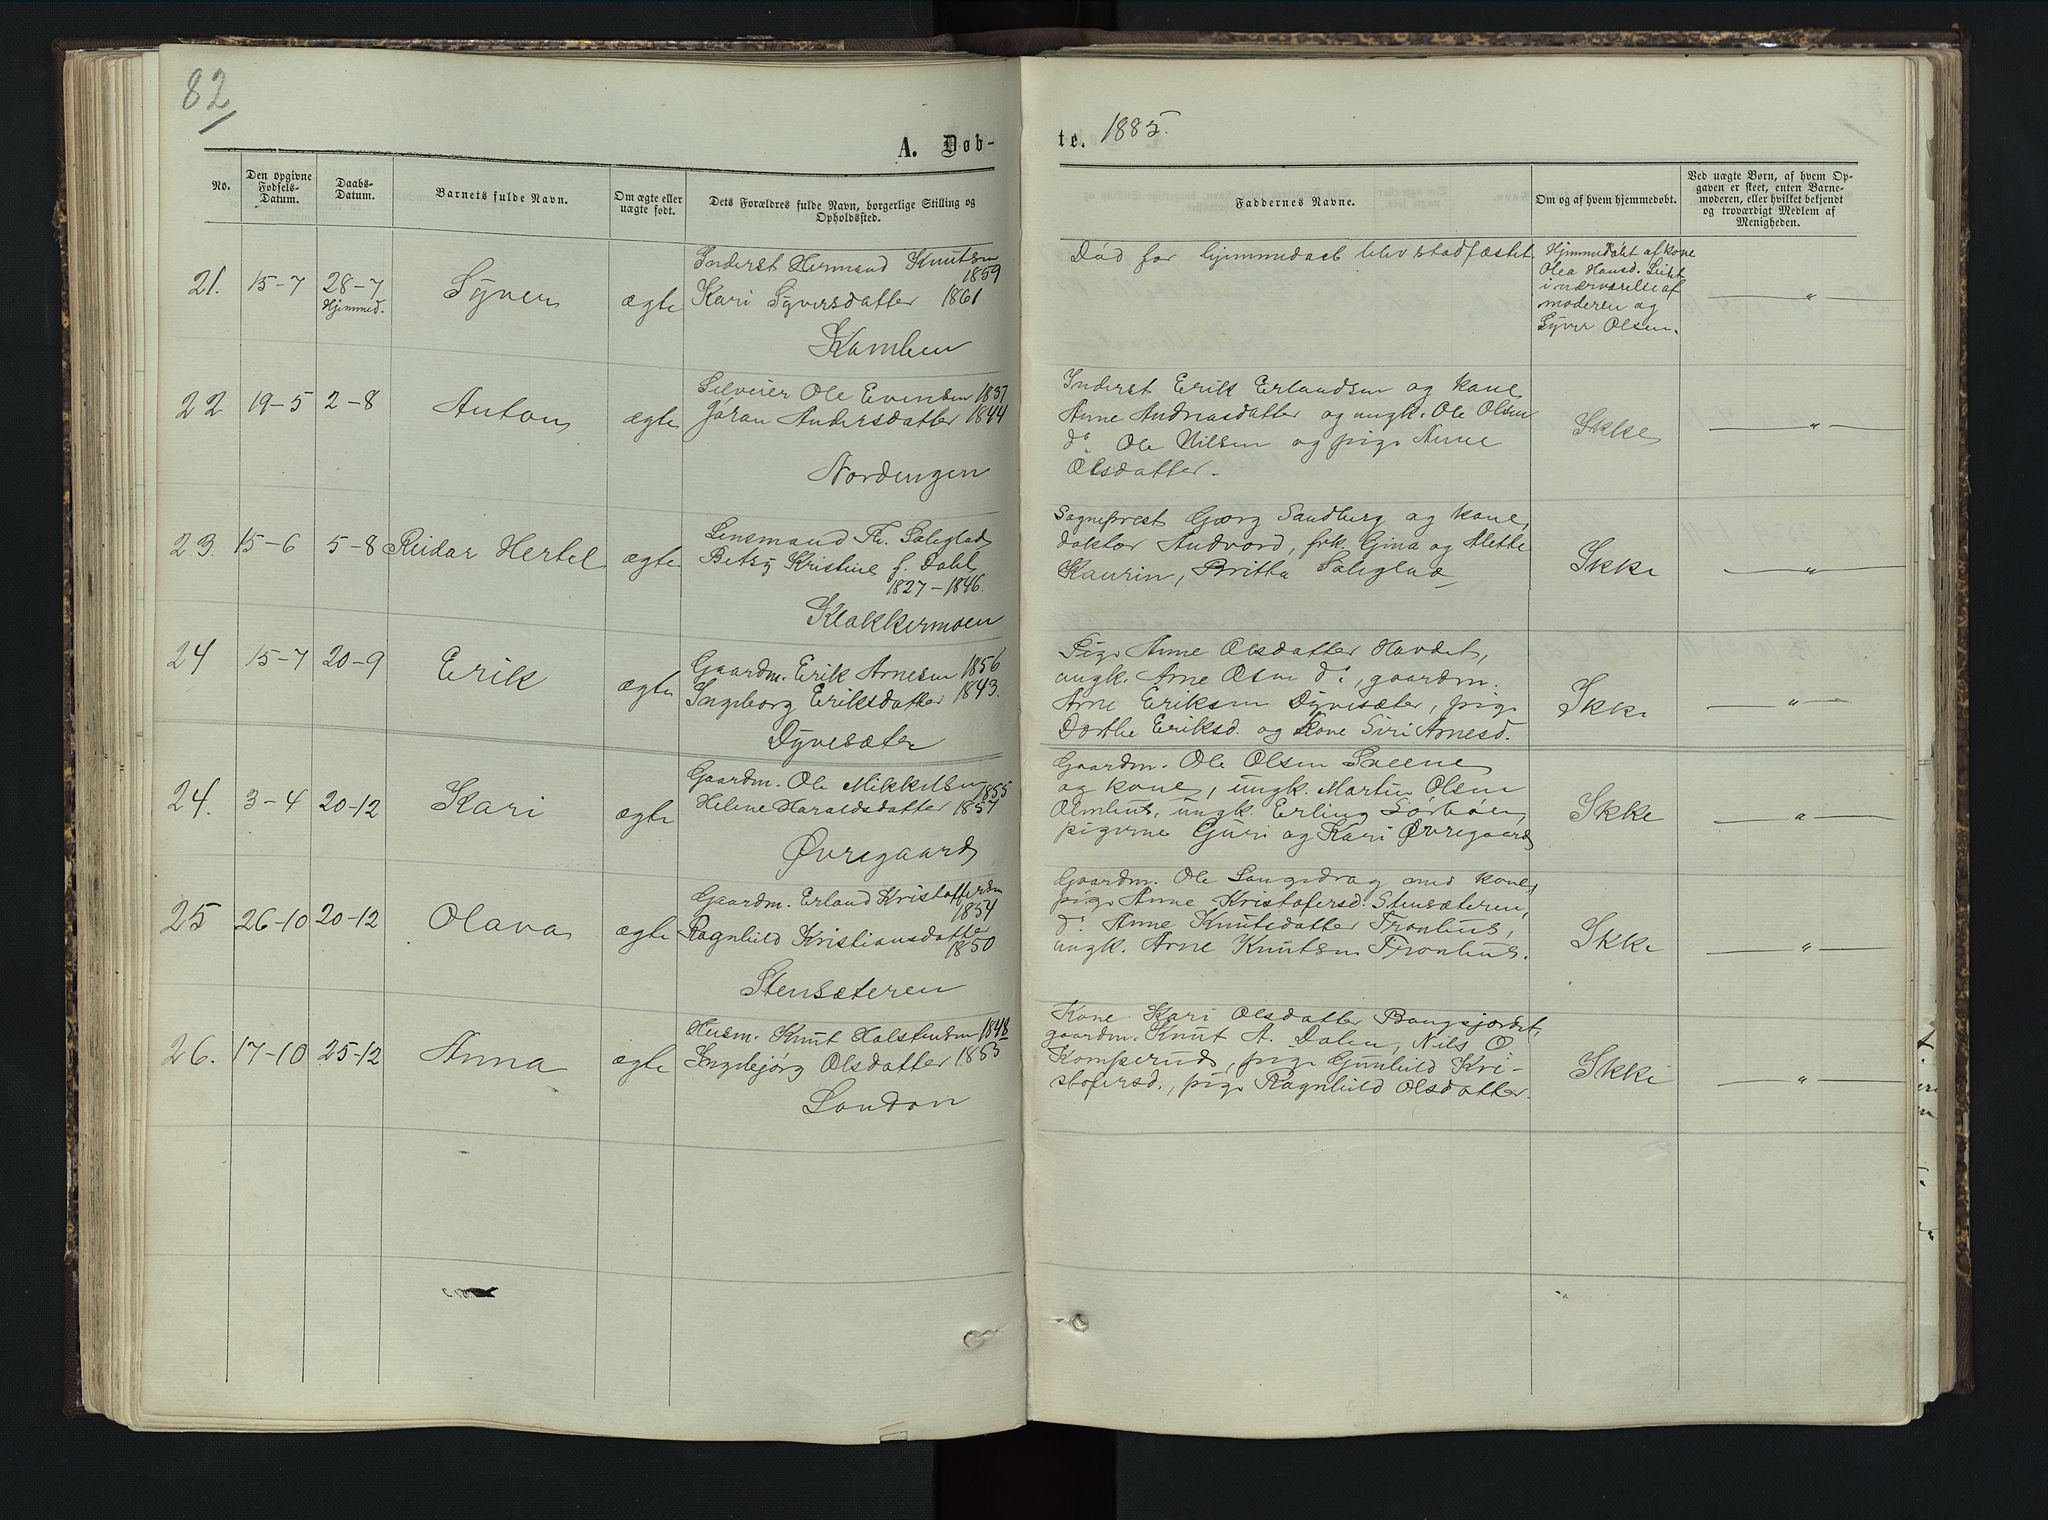 82
A. Døb-
te. 1885.
No.
Den opgivne Fødsels-Datum.
Daabs-Datum.
Barnets fulde Navn.
Om ægte eller uægte født.
Dets Forældres fulde Navn, borgerlige Stilling og Opholdssted.
Faddernes Navne.
Om og af hvem hjemmedøbt.
Ved uægte Børn, af hvem Op-
gaven er skeet, enten Barne-
moderen, eller hvilket bekjendt
og troværdigt Medlem af
Menigheden.
21. 15-7 28-7 Hjemmed. Syver ægte
Inderst Hermand Knutsen 1859
Kari Syversdatter 1861
Kamben
Død før hjemmedaab blev stadfæstet
Hjemmedøbt af kone
Olea Hansd.
i nærværelse af
moderen og
Syver Olsen.
"
22 19-5 2-8 Anton ægte
Selveier Ole Evensen 1837
Jøran Andersdatter 1844
Nordengen
Inderst Erik Erlandsen og kone
Anne Andreasdatter og ungk. Ole Olsen
do Ole Nilsen og pige Anne
Olsdatter.
Ikke
"
23. 15-6 5-8 Reidar Hertel ægte
Lensmand Th. Saleglad
Betsy Kristine f. Dahl
1827-1846.
Klakkermoen
Sogneprest Georg Sandberg og kone,
doktor Andvord, frk. Gina og Alette
Kaurin, Britta Saleglad
Ikke
"
24 15-7 20-9 Erik ægte
Gaardm. Erik Arnesen 1856
Ingeborg Eriksdatter 1843.
Dyvesæter
Pige Anne Olsdatter Hovdet,
ungk. Arne Olsen do, gaardm.
Arne Eriksen Dyvesæter, pige
Dorthe Eriksd. og kone Siri Arnesd.
Ikke
"
24. 3-4 20-12 Kari ægte
Gaardm. Ole Mikkelsen 1855
Helene Haraldsdatter 1857
Øvregaard
Gaardm. Ole Olsen Sveene
og kone, ungk. Martin Olsen
Olmhus, ungk. Erling Sørbøen,
pigerne Guri og Kari Øvregaard
Ikke
"
25 26-10 20-12 Olava ægte
Gaardm. Erland Kristoffersen
1854
Ragnhild Kristiansdatter
1850
Stensæteren
Gaardm. Ole Langedrag med kone,
pige Anne Kristofersd. Stensæteren,
do Anne Knutsdatter Tronhus,
ungk. Arne Knutsen Tronhus.
Ikke
"
26. 17-10 25-12 Anna ægte
Husm. Knut Halstensen 1848
Ingebjørg Olsdatter 1853
London
Kone Kari Olsdatter Bangsjordet,
gaardm. Knut A. Dalen, Nils O
Komperud, pige Gunhild Kri-
stofersd., pige Ragnhild Olsdatter.
Ikke
"